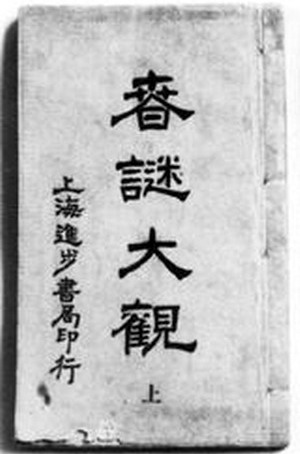 春謎大觀
上
上海進步書局印行